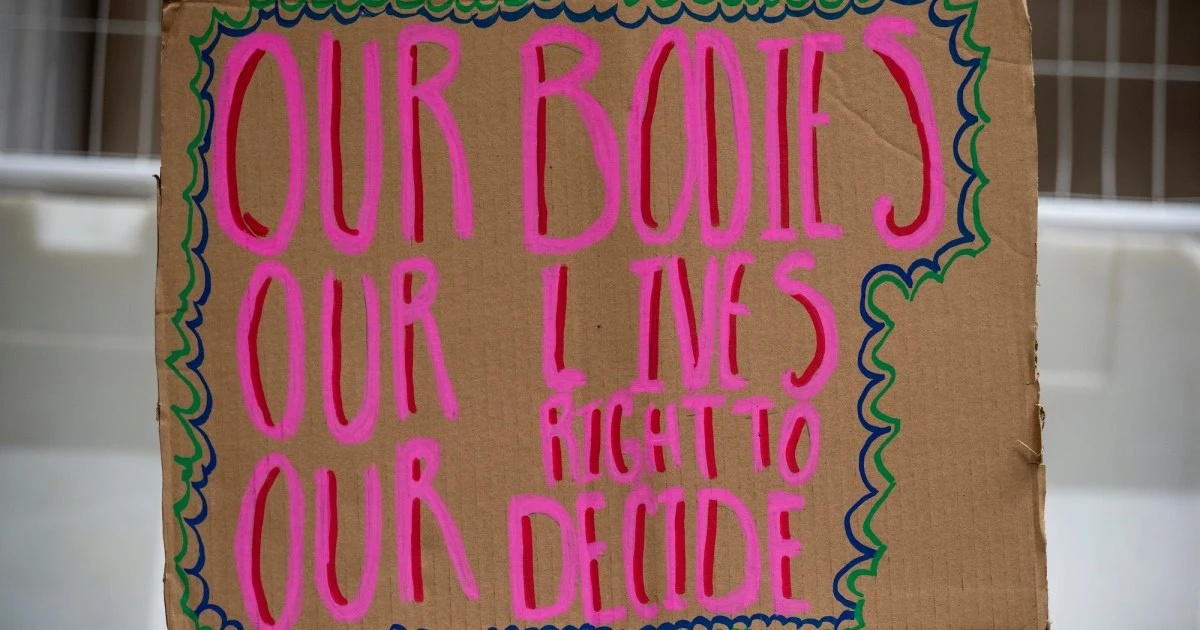 OUR BODIES
OUR LIVES
RIGHT TO
OUR DECIDE